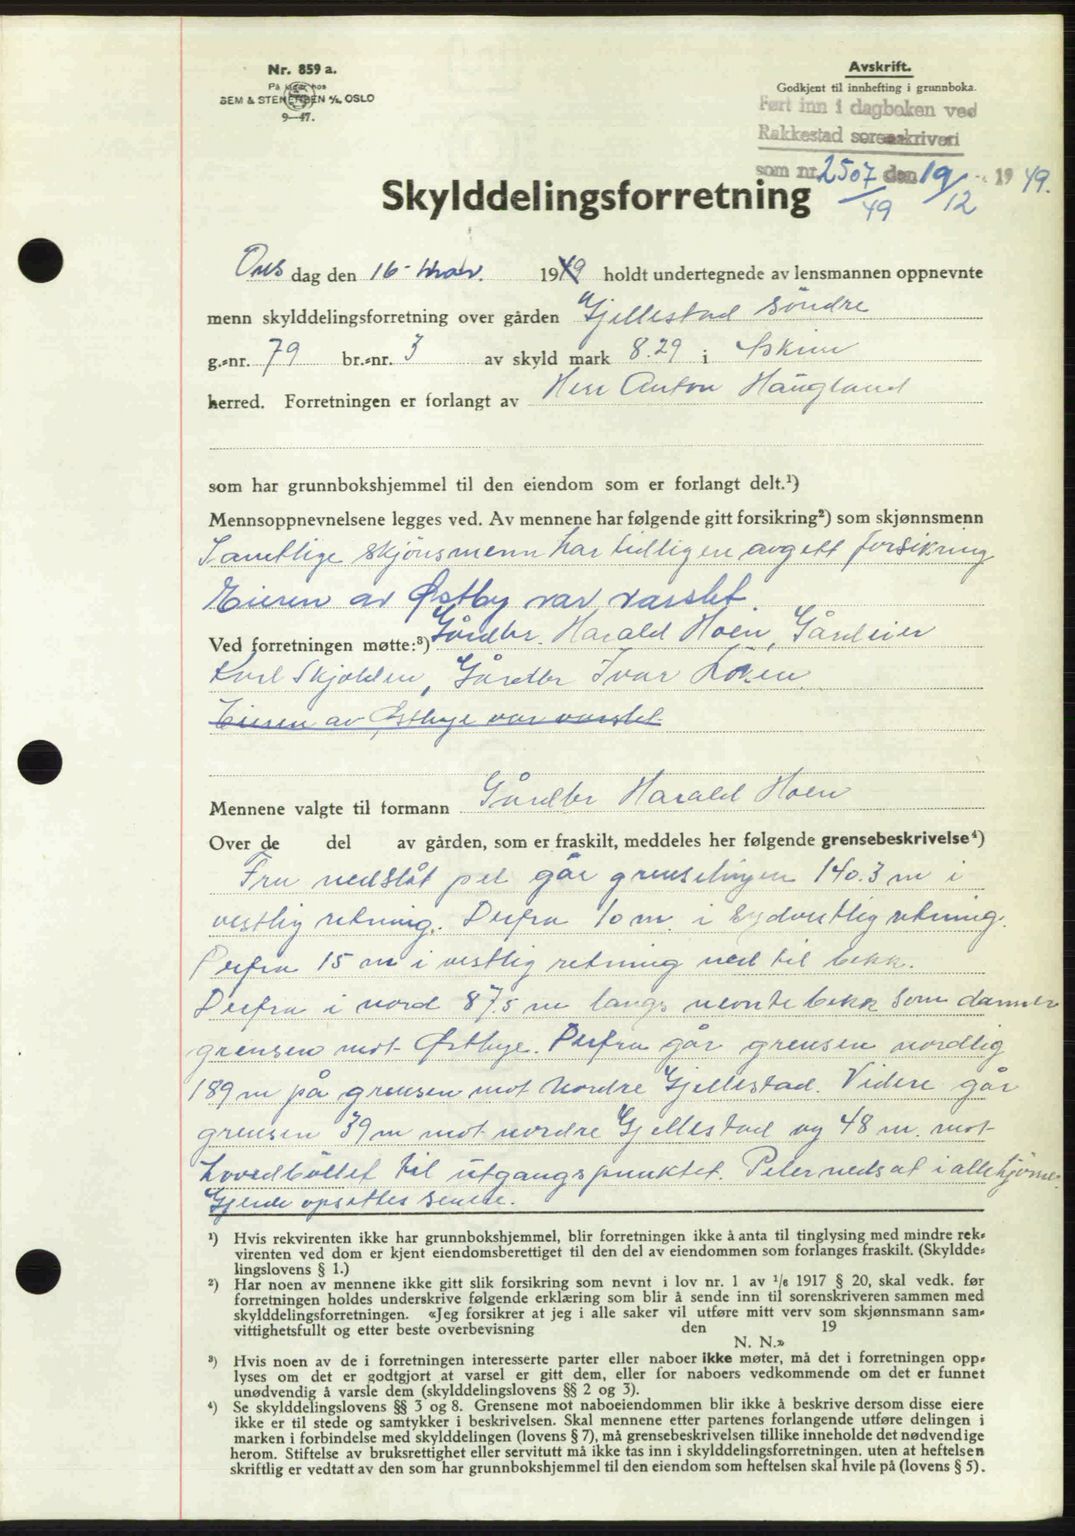 Nr. 859 a.
På lager hos
SEM & STENERSEN A/S, OSLO
9—47.
Avskrift.
Godkjent til innhefting i grunnboka.
Ført inn i dagboken ved
Rakkestad sorenskriveri
som nr. 2507/49 den 19/12 - 1949.
Skylddelingsforretning
Ons dag den 16 - nov. 1949 holdt undertegnede av lensmannen oppnevnte
menn skylddelingsforretning over gården Gjellestad söndre
g.-nr. 79 br.-nr. 3 av skyld mark 8.29 i Askim
herred. Forretningen er forlangt av Herr Anton Haugland
som har grunnbokshjemmel til den eiendom som er forlangt delt.¹)
Mennsoppnevnelsene legges ved. Av mennene har følgende gitt forsikring²) som skjønnsmenn
Samtlige skjönsmenn har tidligen avgett forsikring
Eieren av Østby var varslet.
Ved forretningen møtte:³) Gårdbr. Harald Hoen, Gårdeier
Karl Skjolden, Gårdbr Ivar Löken
Eieren av Østbye var varslet
Mennene valgte til formann Gårdbr Harald Hoen
Over de del av gården, som er fraskilt, meddeles her følgende grensebeskrivelse⁴)
Fra nedslåt pel går grenselinjen 140.3 m i
vestlig retning. Derfra 10 m. i sydvestlig retning.
Derfra 15 m i vestlig retning ned til bekk.
Derfra i nord 87.5 m langs nevnte bekk som danner
grensen mot Østbye. Derfra går grensen nordlig
189 m på grensen mot Nordre Gjellestad. Videre går
grensen 39 m mot nordre Gjellestad og 48 m. mot
hovedbölet til utgangspunktet. Peler nedsat i alle hjörne.
Gjerde opsettes senere.
¹) Hvis rekvirenten ikke har grunnbokshjemmel, blir forretningen ikke å anta til tinglysing med mindre rek-
virenten ved dom er kjent eiendomsberettiget til den del av eiendommen som forlanges fraskilt. (Skyldde-
lingslovens § 1.)
²) Har noen av mennene ikke gitt slik forsikring som nevnt i lov nr. 1 av 1/6 1917 § 20, skal vedk. før
forretningen holdes underskrive følgende erklæring som blir å sende inn til sorenskriveren sammen med
skylddelingsforretningen. «Jeg forsikrer at jeg i alle saker vil utføre mitt verv som skjønnsmann sam-
vittighetsfullt og etter beste overbevisning den 19
N. N.»
³) Hvis noen av de i forretningen interesserte parter eller naboer ikke møter, må det i forretningen opp-
lyses om det er godtgjort at varsel er gitt dem, eller for naboers vedkommende om det er funnet
unødvendig å varsle dem (skylddelingslovens §§ 2 og 3).
⁴) Se skylddelingslovens §§ 3 og 8. Grensene mot naboeiendommen blir ikke å beskrive dersom disse eiere
ikke er til stede og samtykker i beskrivelsen. Skal mennene etter partenes forlangende utføre delingen i
marken i forbindelse med skylddelingen (lovens § 7), må grensebeskrivelsen tillike inneholde det nødvendige
herom. Stiftelse av bruksrettighet eller servitutt må ikke tas inn i skylddelingsforretningen, uten at heftelsen
skriftlig er vedtatt av den som har grunnbokshjemmel til den eiendom som heftelsen skal hvile på (lovens § 5).